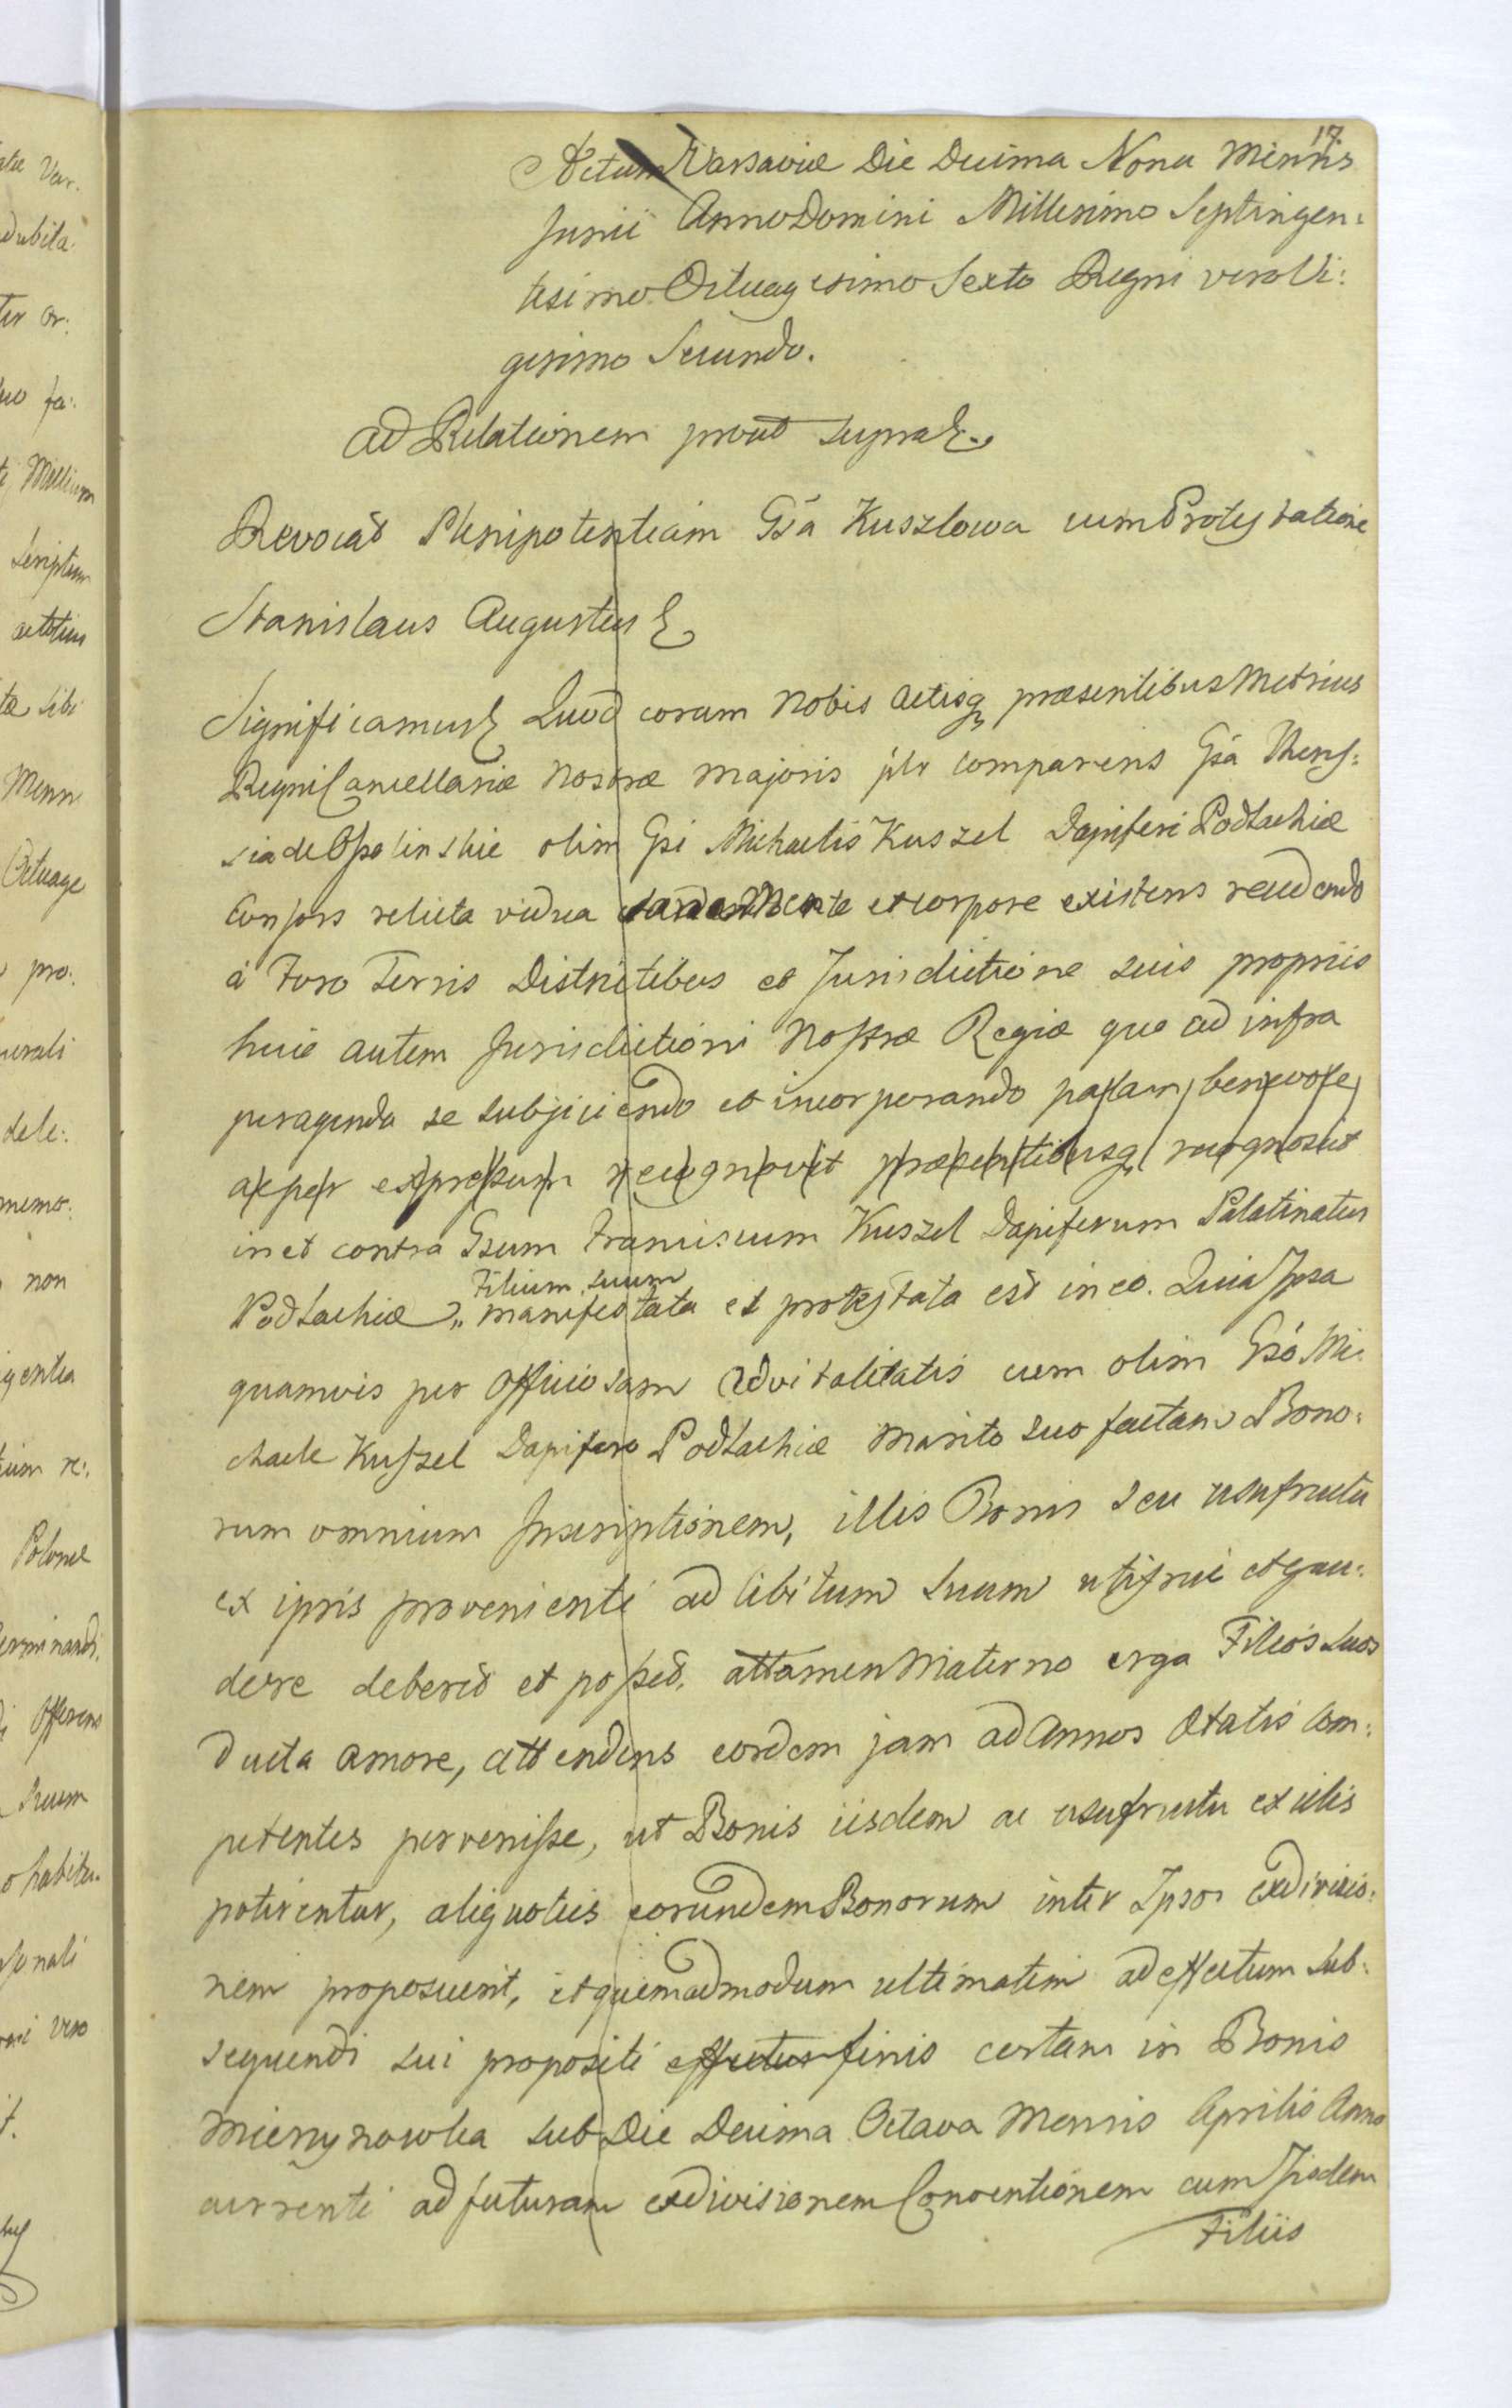 17
Actum Varsaviæ Die Decima Nona Mensis
Junii Anno Domini Millesimo Septingen:
tesimo Octuagesimo Sexto Regni vero Vi:
gesimo Secundo.
Ad Relationem prout supra
Revocat Plenipotentiam Gsa Kuszlowa cum Protestatione
Stanislaus Augustus
Significamus Quod coram Nobis Actisq præsentibus Metrices
Regni Cancellariæ Nostræ Majoris plr comparens Gsa
sia de Opolinskie olim Gsi Michaelis Kuszel Dapiferi Podlachiæ
Consors relicta vidua sana Mente et corpore existens recedendo
à Foro Terris Districtibus et Jurisdictione suis propriis
huic autem Jurisdictioni Nostræ Regiæ quo ad infra
peragenda se subjiciendo et incorporando palam benevole
ac per expressum recognovit præsentibusq recognoscit
in et contra Gsum Franciscum Kuszel Dapiferum Palatinatus
Filium suum
Podlachiæ manifestata et protestata est in eo. Quia Ipsa
quamvis per Officiosam Advitalitatis cum olim Gso Mi:
chaele Kuszel Dapifero Podlachiæ Marito suo factam Bono:
rum omnium Inscriptionem, illis Bonis seu usufructu
ex ipsis provenienti ad libitum suum uti frui et gau:
dere deberet et posset, attamen Materno erga Filios suos
ducta amore, attendens eosdem jam ad Annos Ætatis Com:
petentes pervenisse, ut Bonis iisdem ac usufructu ex illis
potirentur, aliquoties eorundem Bonorum inter Ipsos exdivisio:
nem proposuerit, et quemadmodum ultimatim ad effectum sub:
sequendi sui propositi effectus finis certam in Bonis
sub Die Decima Octava Mensis Aprilis Anno
currenti ad futuram exdivisionem Conventionem cum Iisdem
Filiis